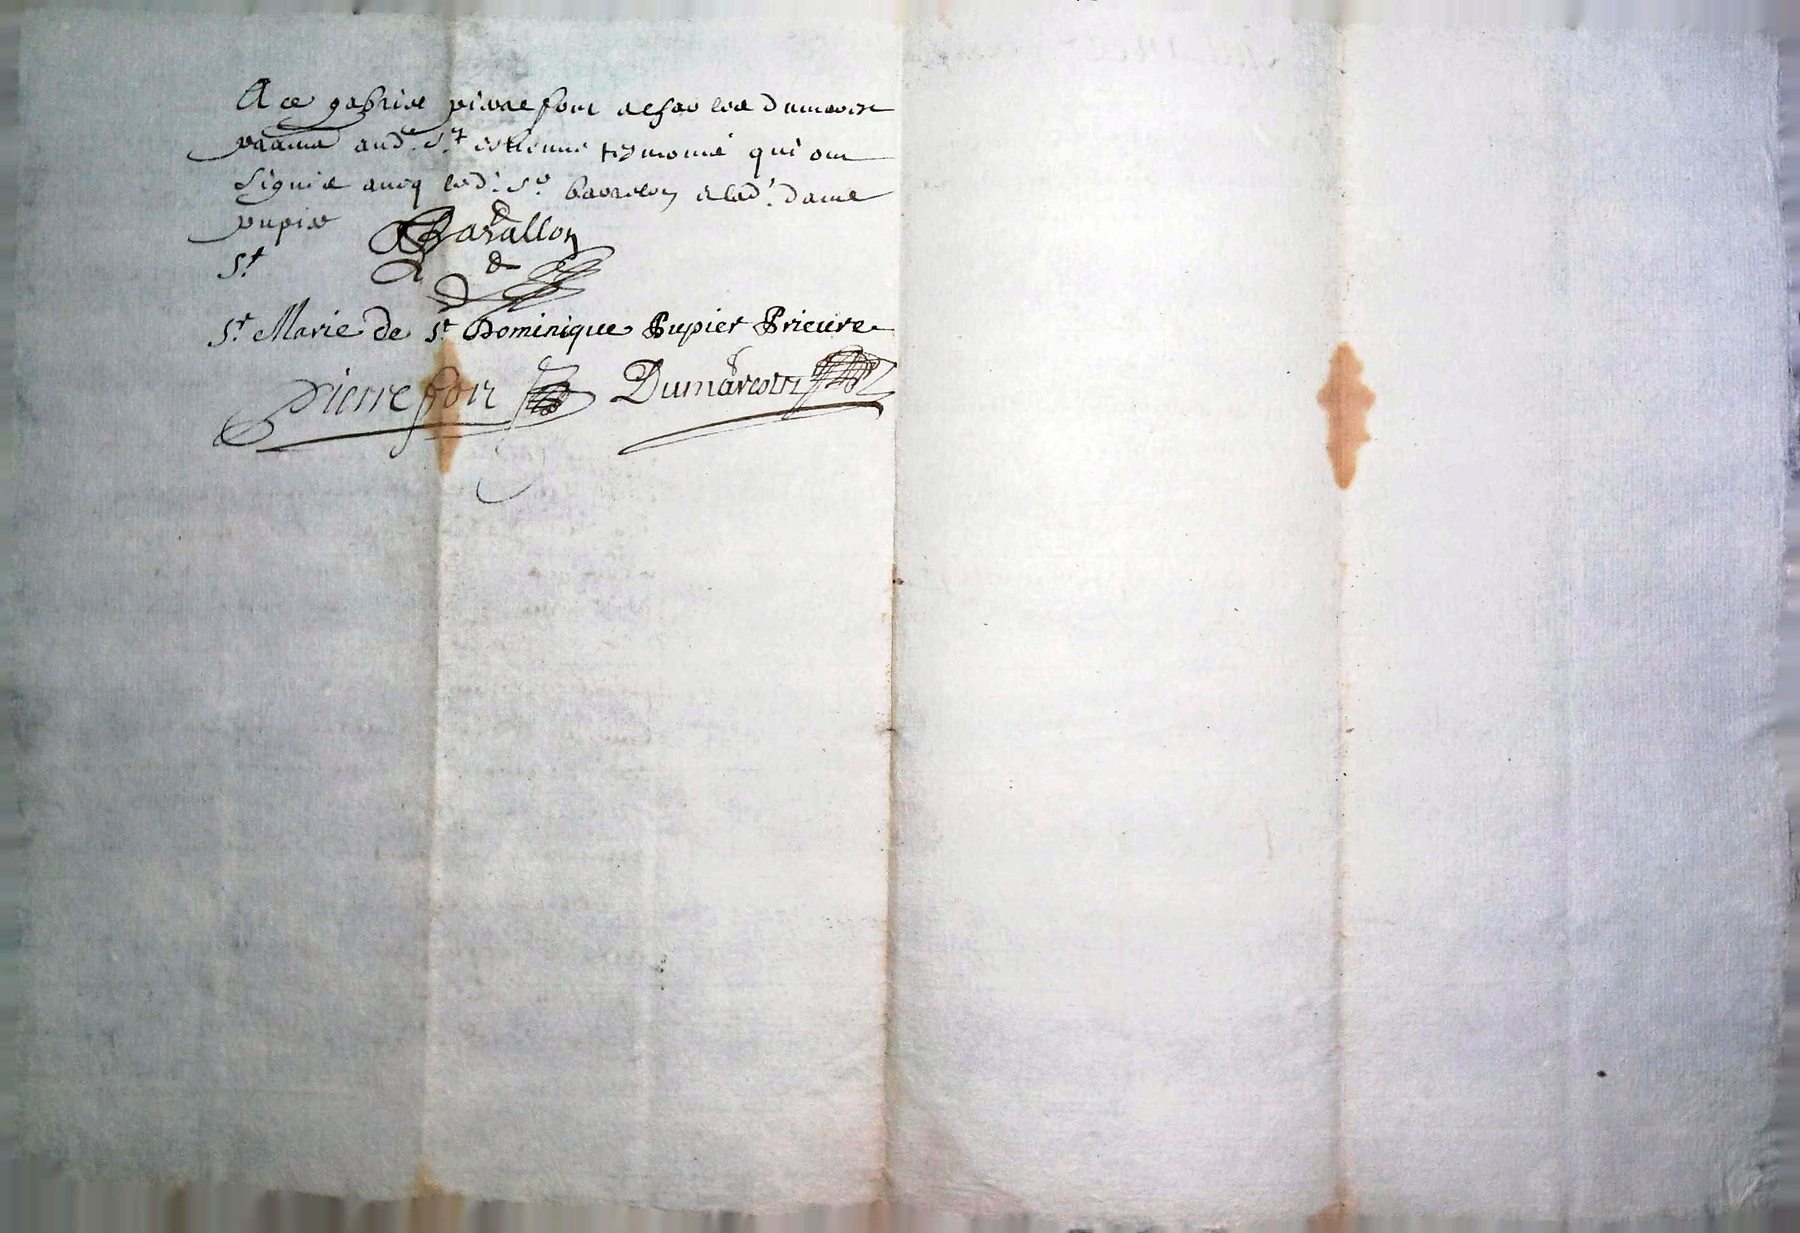 A ce gabriel pierrefont et charles dumarest
praud aud. St estienne tesmoins qui ont
signés avecq led. Sr baralon et lad. dame
pupier
Baralallon
St
St Marie de St Dominique Pupier Prieure
Pierrefort Dumarestz